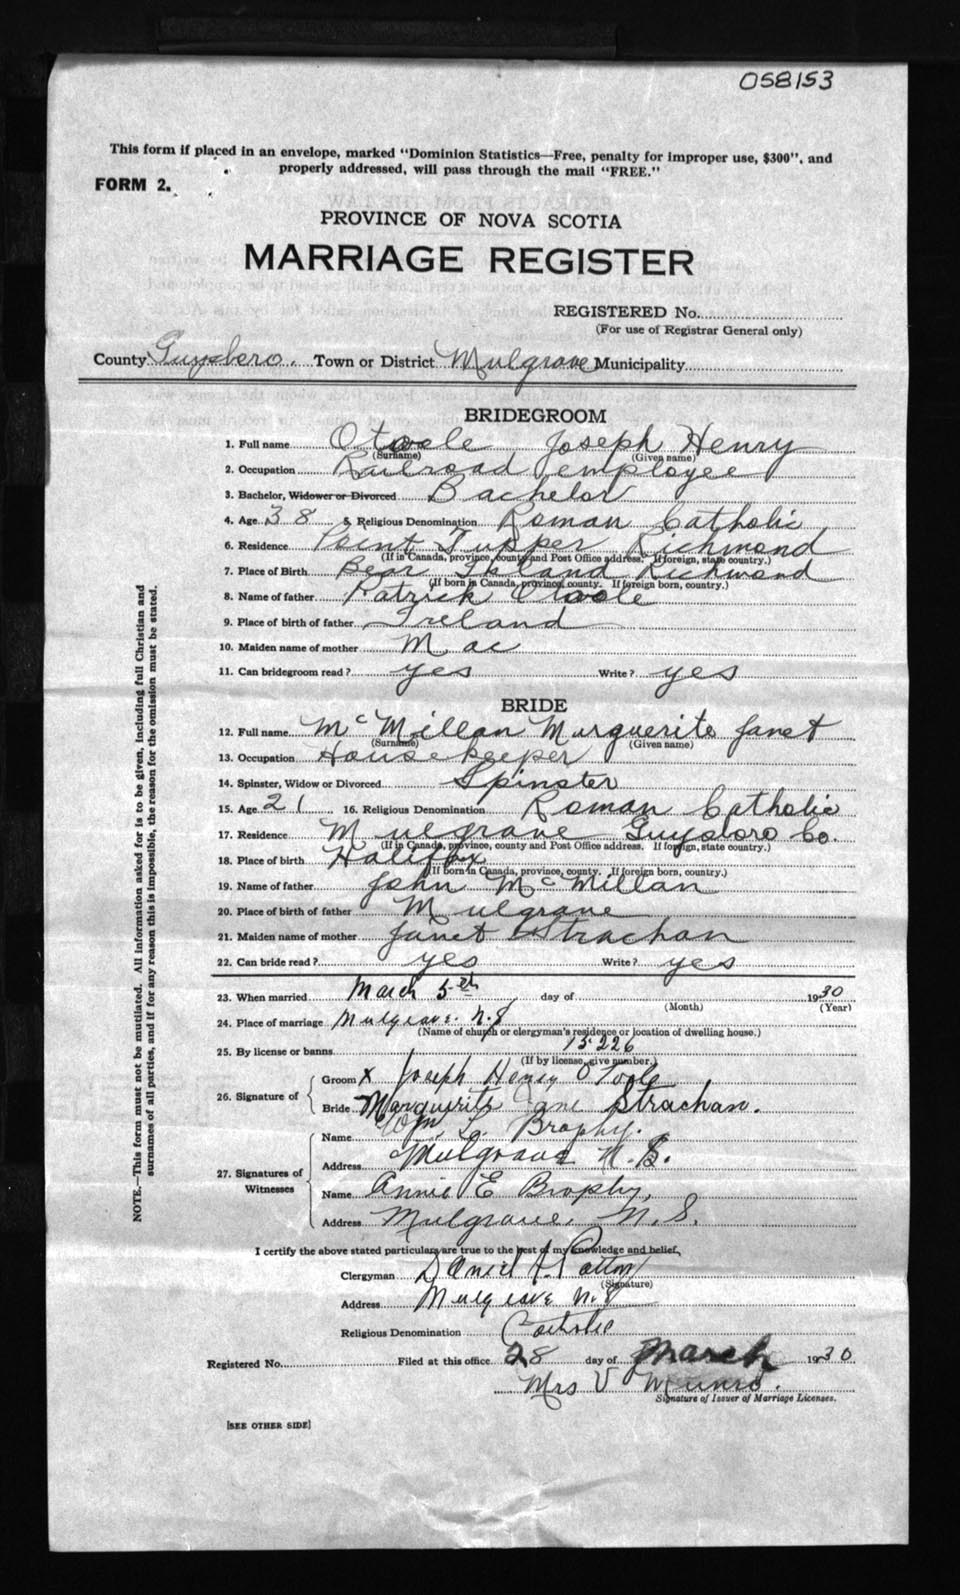 058153
This form if placed in an envelope, marked "Dominion Statistics—Free, penalty for improper use, $300", and
properly addressed, will pass through the mail "FREE."
FORM 2.
PROVINCE OF NOVA SCOTIA
MARRIAGE REGISTER
REGISTERED No.
(For use of Registrar General only)
County Guysboro. Town or District Mulgrave Municipality
BRIDEGROOM
1. Full name Otoole Joseph Henry
(Surname) (Given name)
2. Occupation Railroad employee
3. Bachelor, Widower or Divorced Bachelor
4. Age 38 5. Religious Denomination Roman Catholic
6. Residence Point Tupper Richmond
(If in Canada, province, county and Post Office address. If foreign, state country.)
7. Place of Birth Bear Island Richmond
(If born in Canada, province, county. If foreign born, country.)
8. Name of father Patrick Otoole
9. Place of birth of father Ireland
10. Maiden name of mother Mac
11. Can bridegroom read? yes Write? yes
BRIDE
12. Full name McMillan Marguerite Janet
(Surname) (Given name)
13. Occupation Housekeeper
14. Spinster, Widow or Divorced Spinster
15. Age 21 16. Religious Denomination Roman Catholic
17. Residence Mulgrave Guysboro Co.
(If in Canada, province, county and Post Office address. If foreign, state country.)
18. Place of birth Halifax
(If born in Canada, province, county. If foreign born, country.)
19. Name of father John McMillan
20. Place of birth of father Mulgrave
21. Maiden name of mother Janet Strachan
22. Can bride read? yes Write? yes
23. When married March 5th day of 1930
(Month) (Year)
24. Place of marriage Mulgrave. N.S
(Name of church or clergyman's residence or location of dwelling house.)
25. By license or banns 15226
(If by license, give number.)
26. Signature of
Groom X Joseph Henry OToole
Bride Marguerite Jane Strachan.
27. Signatures of Witnesses
Name Wm. L. Brophy.
Address Mulgrave N.S.
Name Annie E Brophy,
Address Mulgrave, N.S.
I certify the above stated particulars are true to the best of my knowledge and belief,
Clergyman Daniel
(Signature)
Address Mulgrave N.S
Religious Denomination Catholic
Registered No. Filed at this office 28 day of March 1930
Mrs V Munro.
Signature of Issuer of Marriage Licenses.
[SEE OTHER SIDE]
NOTE.—This form must not be mutilated. All information asked for is to be given, including full Christian and
surnames of all parties, and if for any reason this is impossible, the reason for the omission must be stated.